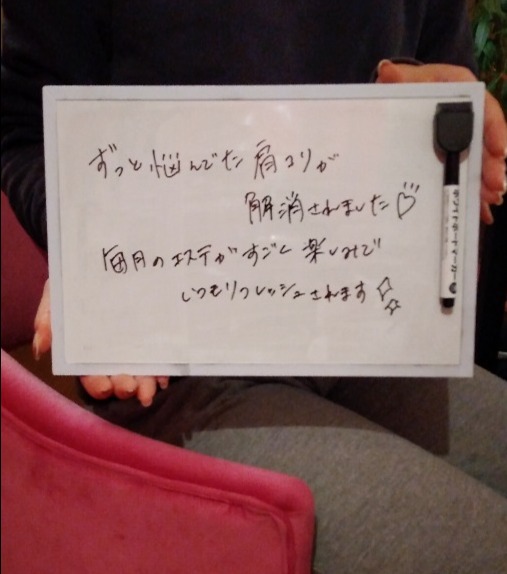 ずっと悩んでた肩コリが
解消されました♡
毎月のエステがすごく楽しみで
いつもリフレッシュされます
ホワイトボードマーカー